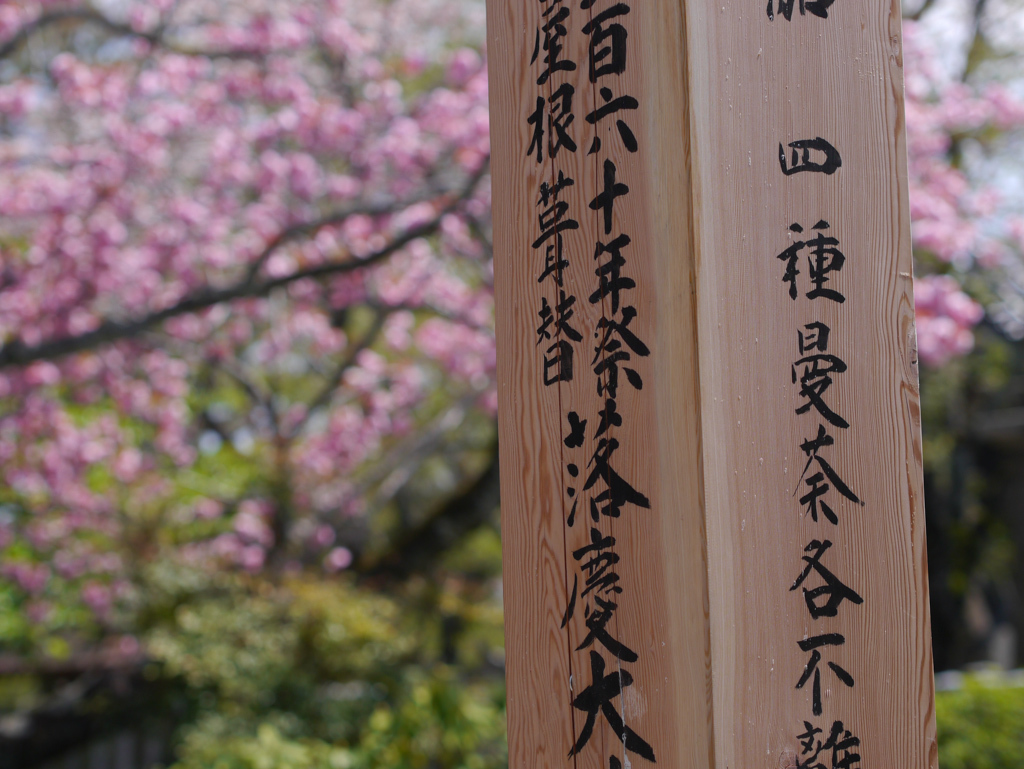 四種曼荼各不離
百六十年祭落慶大
屋根葺替